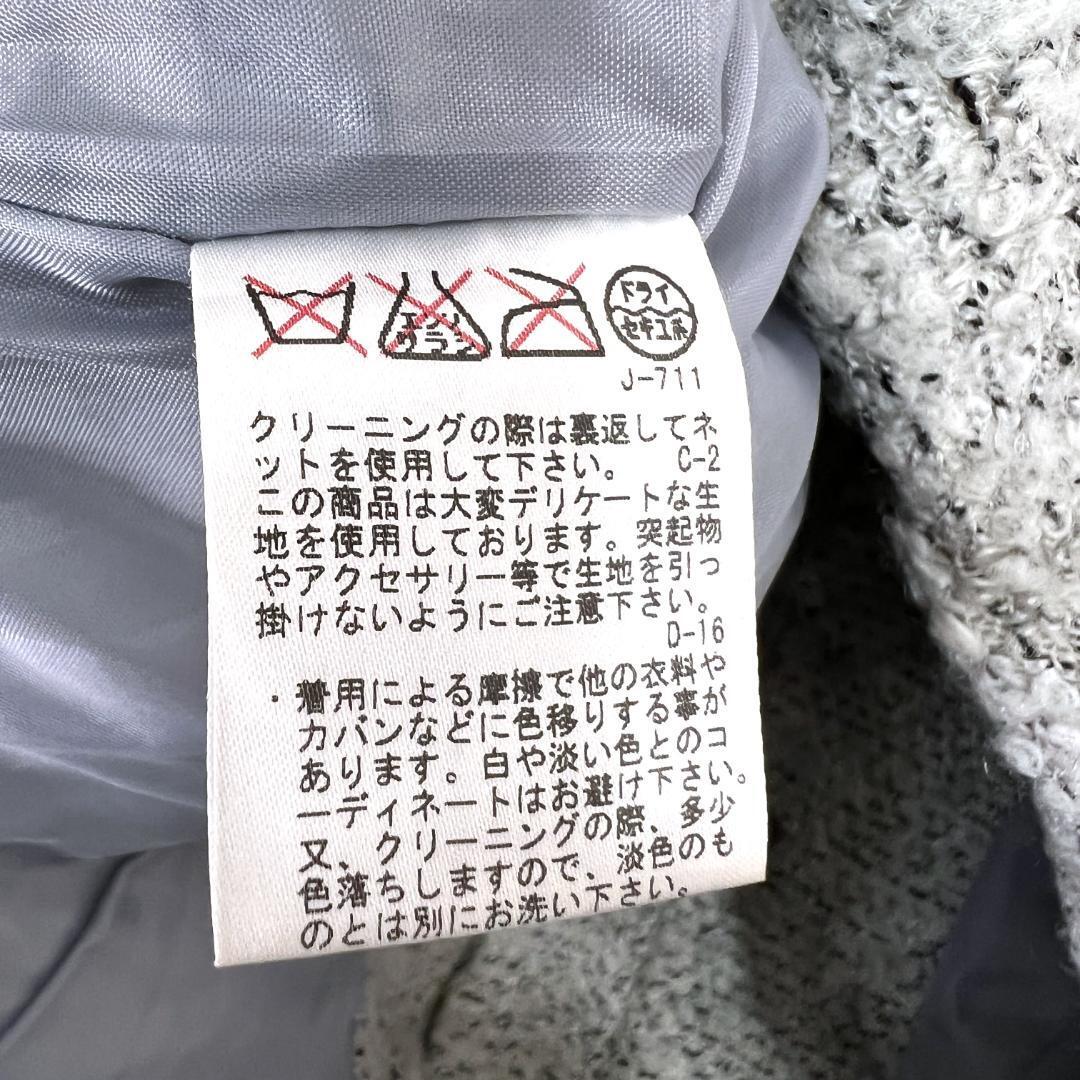 エンソ
サラシ
ドライ
セキユ系
J-711
クリーニングの際は裏返してネ
ットを使用して下さい。 C-2
この商品は大変デリケートな生
地を使用しております。突起物
やアクセサリー等で生地を引っ
掛けないようにご注意下さい。
D-16
・着用による摩擦で他の衣料や
カバンなどに色移りする事が
あります。白や淡い色とのコ
ーディネートはお避け下さい。
又、クリーニングの際、多少
色落ちしますので、淡色のも
のとは別にお洗い下さい。